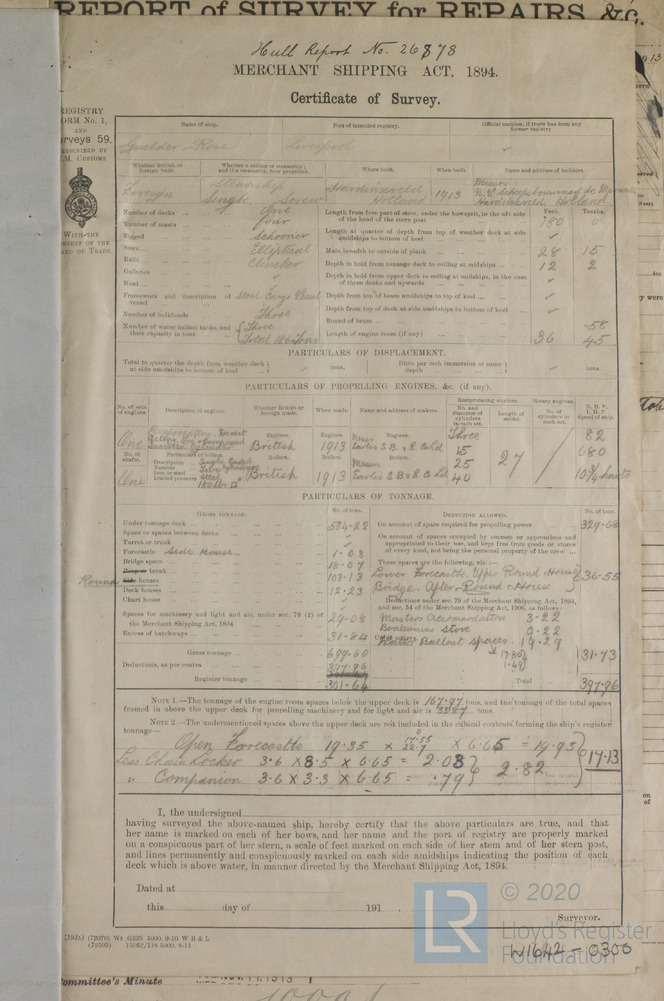 REPORT of SURVEY for REPAIRS, &c.
Hull Report No. 26878
MERCHANT SHIPPING ACT, 1894.
Certificate of Survey.
REGISTRY
FORM No. 1,
AND
Surveys 59,
PRESCRIBED BY
CUSTOMS
WITH THE
CONSENT OF THE
BOARD OF TRADE.
Name of ship.
Port of intended registry.
Official number, if there has been any former registry
Guelder Rose
Liverpool
Whether British or foreign built.
Whether a sailing or steamship; and if a steamship, how propelled.
Where built.
When built.
Name and address of builders.
Foreign
Steamship Single Screw
Hardinxveld Holland
1913
Messrs
Hardinxveld Holland
Number of decks One
Number of masts Four
Rigged Schooner
Stern Elliptical
Build Clencher
Galleries
Head
Framework and description of vessel Steel Cargo Vessel
Number of bulkheads Three
Number of water ballast tanks, and their capacity in tons { Three Total 186 Tons
Feet. Tenths.
Length from fore part of stem, under the bowsprit, to the aft side of the head of the stern post 180 0
Length at quarter of depth from top of weather deck at side amidships to bottom of keel
Main breadth to outside of plank 28 15
Depth in hold from tonnage deck to ceiling at midships 12 2
Depth in hold from upper deck to ceiling at midships, in the case of three decks and upwards
Depth from top of beam amidships to top of keel
Depth from top of deck at side amidships to bottom of keel
Round of beam .58
Length of engine room (if any) 36 45
PARTICULARS OF DISPLACEMENT.
Total to quarter the depth from weather deck at side amidships to bottom of keel } tons.
Ditto per inch immersion at same depth } tons.
PARTICULARS OF PROPELLING ENGINES, &c. (if any).
No. of sets of engines.
Description of engines.
Whether British or foreign made.
When made.
Name and address of makers.
Reciprocating engines.
No. and diameter of cylinders in each set.
Length of stroke.
Rotary engines.
No. of cylinders in each set.
N. H. P.
I. H. P.
Speed of ship.
One
Engines.
British
Engines.
1913
Engines.
Messrs Earles S.B. & E. Co Ld
Three
15
25
40
27
82
680
10¾ knots
No. of shafts.
One
Particulars of boilers.
Description
Number
Iron or steel Steel
Loaded pressure 180 lbs
Boilers.
British
Boilers.
1913
Boilers.
Messrs Earles S B & E Co Ld
PARTICULARS OF TONNAGE.
GROSS TONNAGE.
No. of tons.
DEDUCTIONS ALLOWED.
No. of tons.
Under tonnage deck 504.22
Space or spaces between decks
Turret or trunk
Forecastle Side House 1.08
Bridge space 18.07
break
Round houses 103.13
Deck houses 12.23
Chart house
Spaces for machinery and light and air, under sec. 78 (2) of the Merchant Shipping Act, 1894 29.08
Excess of hatchways 31.84
Gross tonnage 699.60
Deductions, as per contra 397.96
Register tonnage 301.64
On account of space required for propelling power 329.68
On account of spaces occupied by seamen or apprentices and appropriated to their use, and kept free from goods or stores of every kind, not being the personal property of the crew
These spaces are the following, viz.:—
Lower Forecastle, Upper Round House
Bridge. After Round House } 36.55
Deductions under sec. 79 of the Merchant Shipping Act, 1894, and sec. 54 of the Merchant Shipping Act, 1906, as follows:
Masters Accommodation 3.22
Boatswains store 9.22
Water Ballast spaces. 19.29
17.80
1.49
31.73
Total 397.96
NOTE 1.—The tonnage of the engine room spaces below the upper deck is 167.97 tons, and the tonnage of the total spaces framed in above the upper deck for propelling machinery and for light and air is tons.
NOTE 2.—The undermentioned spaces above the upper deck are not included in the cubical contents forming the ship's register tonnage—
Open Forecastle 19.35 × × 6.65 = 19.95
Less Chain Locker 3.6 × 8.5 × 6.65 = 2.03 } 2.82 } 17.13
" Companion 3.6 × 3.3 × 6.65 = .79
I, the undersigned
having surveyed the above-named ship, hereby certify that the above particulars are true, and that
her name is marked on each of her bows, and her name and the port of registry are properly marked
on a conspicuous part of her stern, a scale of feet marked on each side of her stem and of her stern post,
and lines permanently and conspicuously marked on each side amidships indicating the position of each
deck which is above water, in manner directed by the Merchant Shipping Act, 1894.
Dated at
this day of 191 .
Surveyor.
(72076) Wt G225 5000. 9-10 W B & L
(72593) 15087/118 5000. 9-11
© 2020
LR
Lloyd's Register
Foundation
W1642-0300
Committee's Minute